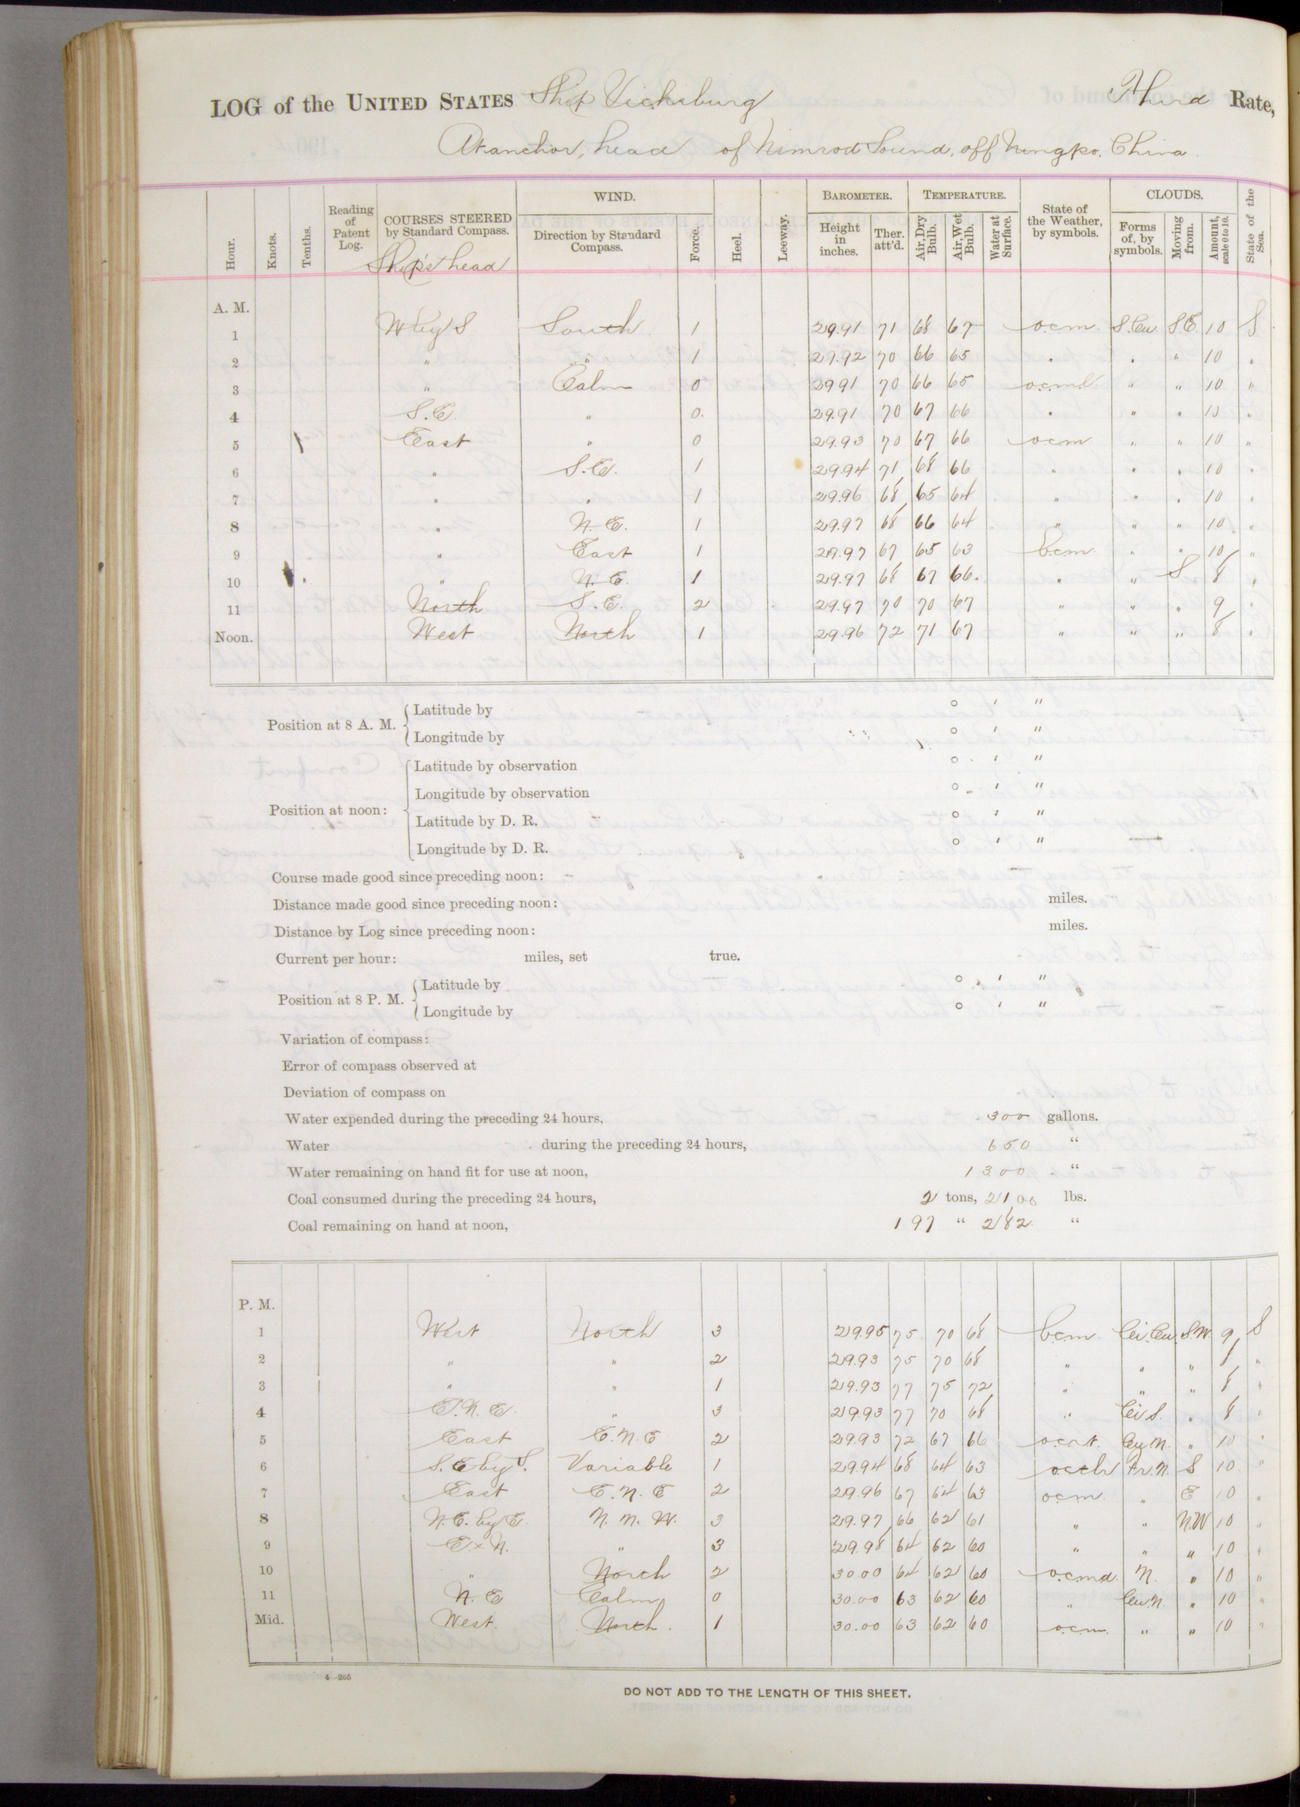 LOG of the UNITED STATES Ship Vicksburg Third Rate,
At anchor, head of Nimrod Sound, off Ningpo, China
Hour. Knots. Tenths. Reading of Patent Log. COURSES STEERED by Standard Compass. Ship's head WIND. Direction by Standard Compass. Force. Heel. Leeway. BAROMETER. Height in inches. Ther. att'd. TEMPERATURE. Air, Dry Bulb. Air, Wet Bulb. Water at Surface. State of the Weather, by symbols. CLOUDS. Forms of, by symbols. Moving from. Amount, scale 0 to 10. State of the Sea.
A. M.
1 W by S South 1 29.91 71 68 67 o.c.m. S.Cu. S.E. 10 S
2 " " 1 29.92 70 66 65 " " " 10 "
3 " Calm 0 29.91 70 66 65 o.c.m.d. " " 10 "
4 S.E. " 0 29.91 70 67 66 " " " 10 "
5 East " 0 29.93 70 67 66 o.c.m. " " 10 "
6 " S.E. 1 29.94 71 68 66 " " " 10 "
7 " " 1 29.96 68 65 64 " " " 10 "
8 " N.E. 1 29.97 68 66 64 " " " 10 "
9 " East 1 29.97 67 65 63 b.c.m. " " 10 "
10 " N.E. 1 29.97 68 67 66 " " S 8 "
11 North S.E. 2 29.97 70 70 67 " " " 9 "
Noon. West North 1 29.96 72 71 67 " " " 8 "
Position at 8 A. M. Latitude by ° ′ ″
Longitude by ° ′ ″
Position at noon: Latitude by observation ° ′ ″
Longitude by observation ° ′ ″
Latitude by D. R. ° ′ ″
Longitude by D. R. ° ′ ″
Course made good since preceding noon:
Distance made good since preceding noon: miles.
Distance by Log since preceding noon: miles.
Current per hour: miles, set true.
Position at 8 P. M. Latitude by ° ′ ″
Longitude by ° ′ ″
Variation of compass:
Error of compass observed at
Deviation of compass on
Water expended during the preceding 24 hours, 300 gallons.
Water during the preceding 24 hours, 650 "
Water remaining on hand fit for use at noon, 1300 "
Coal consumed during the preceding 24 hours, 2 tons, 2100 lbs.
Coal remaining on hand at noon, 197 " 282 "
P. M.
1 West North 3 29.95 75 70 68 b.c.m. Ci.Cu. S.W. 9 S
2 " " 2 29.93 75 70 68 " " " 8 "
3 " " 1 29.93 77 75 72 " " " 8 "
4 E.N.E. " 3 29.93 77 70 68 " Ci.S. " 8 "
5 East E.N.E 2 29.93 72 67 66 " 10 "
6 S.E by S. Variable 1 29.94 68 64 63 Fr.N. S 10 "
7 East E.N.E 2 29.96 67 64 63 o.c.m. " E 10 "
8 N.E. by E. N.N.W. 3 29.97 66 62 61 " " N.W 10 "
9 E x N. " 3 29.98 64 62 60 " " " 10 "
10 " North 2 30.00 64 62 60 o.c.m.d. N. " 10 "
11 N.E Calm 0 30.00 63 62 60 " Cu.N. " 10 "
Mid. West. North 1 30.00 63 62 60 o.c.m. " " 10 "
4—265
DO NOT ADD TO THE LENGTH OF THIS SHEET.